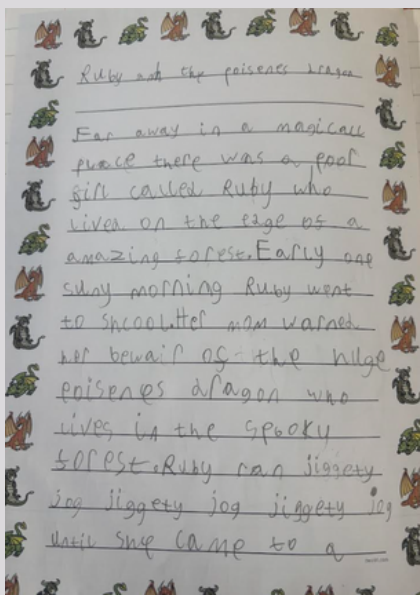 Ruby and the poisenes dragon
Far away in a magicall
place there was a poor
girl called Ruby who
lived on the edge of a
amazing forest. Early one
suny morning Ruby went
to shcool. Her mom warned
her bewair of the huge
poisenes dragon who
lives in the spooky
forest. Ruby ran jiggety
jog jiggety jog jiggety jog
until she came to a